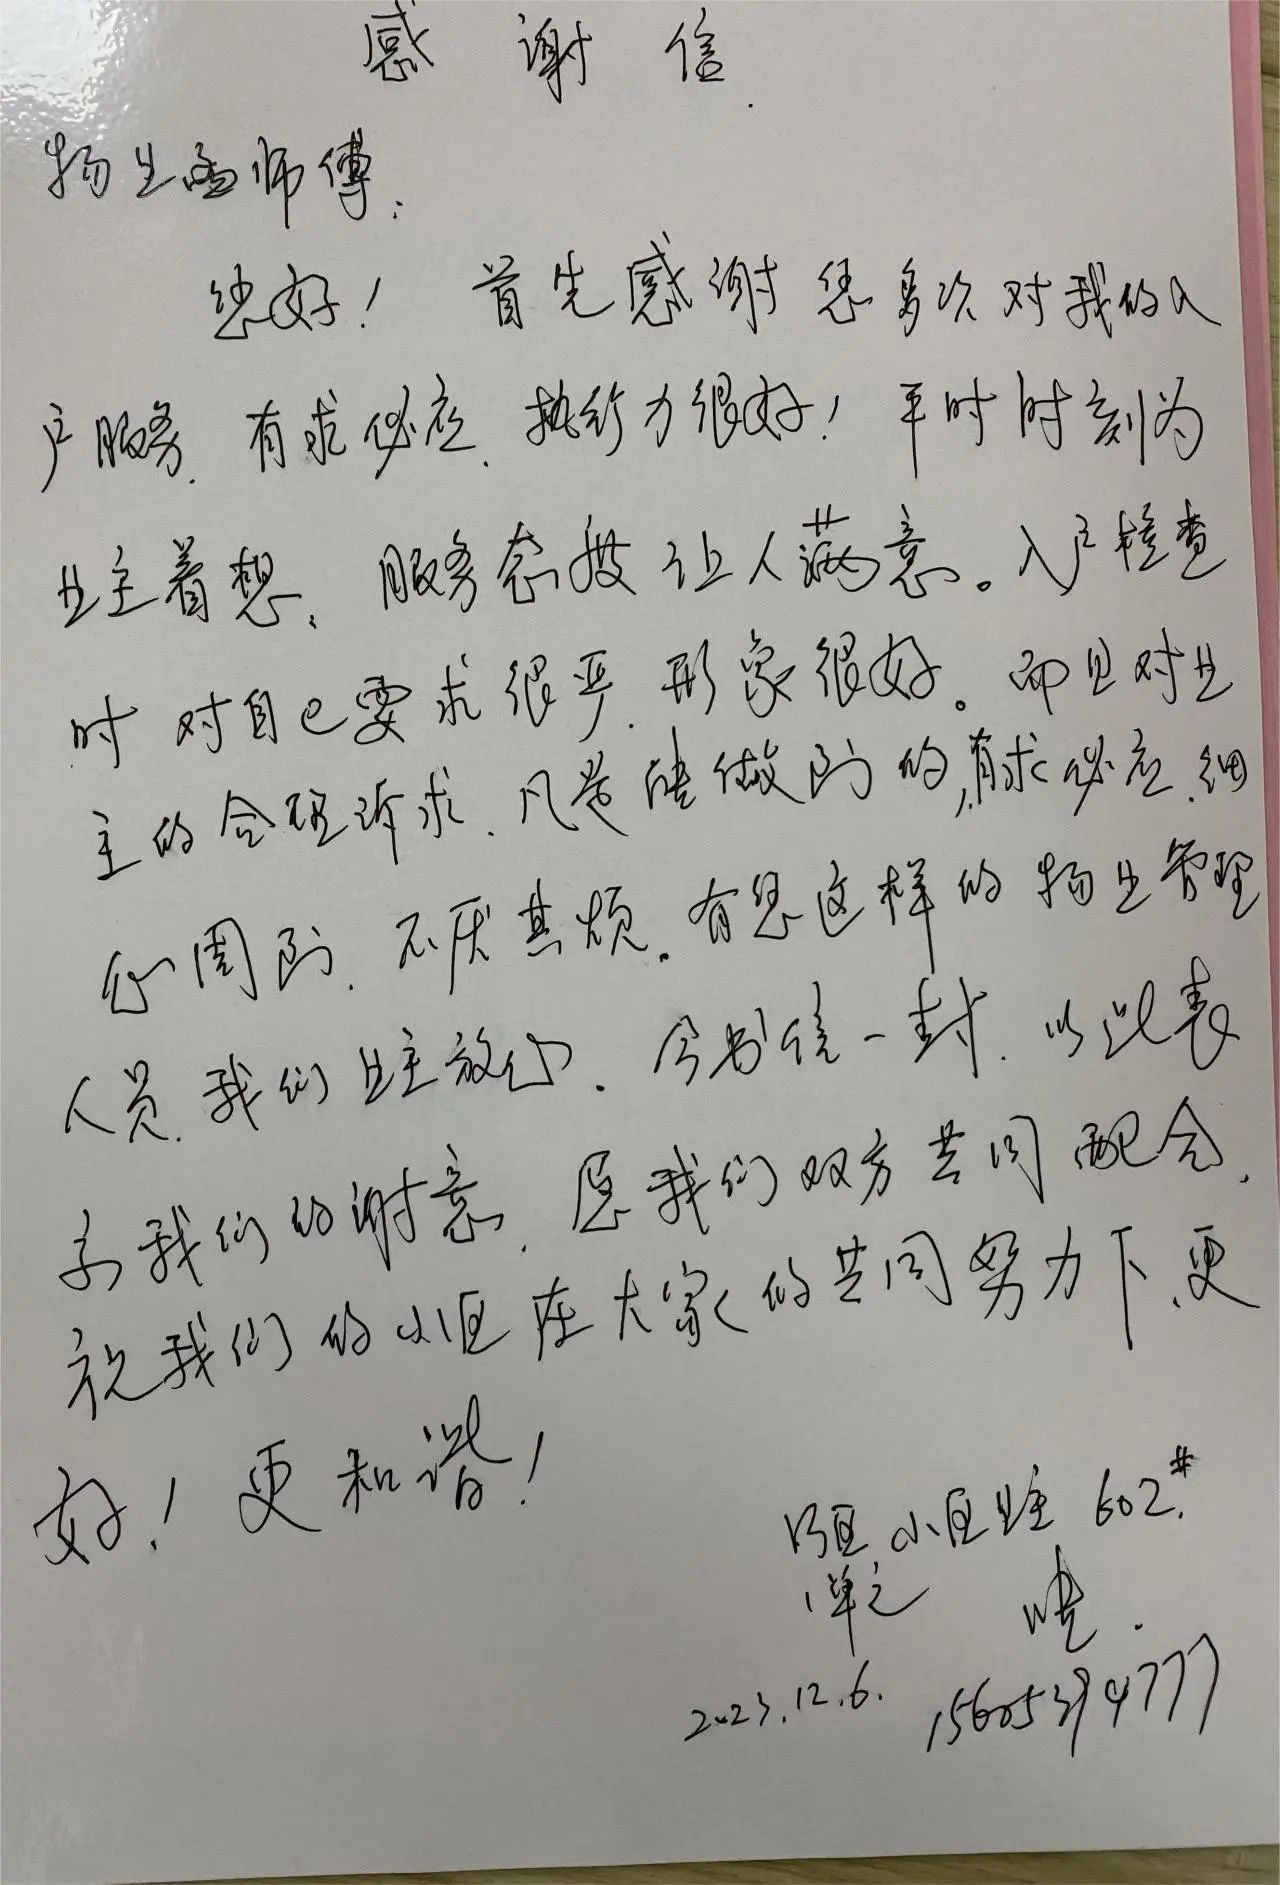 感谢信
物业孟师傅:
您好！首先感谢您多次对我的入
户服务.有求必应.执行力很好！平时时刻为
业主着想、服务态度让人满意。入户检查
时对自己要求很严.形象很好。而且对业
主的合理诉求、凡是能做到的,有求必应.细
心周到.不厌其烦.有您这样的物业管理
人员.我们业主放心.今书信一封.以此表
示我们的谢意.愿我们双方共同配合,
祝我们的小区在大家的共同努力下、更
好！更和谐！
小区业主 602#
1单元
2023.12.6. 15605394777